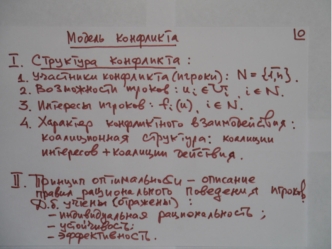 Модель конфликта
10
I. Структура конфликта:
1. Участники конфликта (игроки): N = {1,n}.
2. Возможности игроков: uᵢ ∈ Uᵢ, i ∈ N.
3. Интересы игроков: fᵢ(u), i ∈ N.
4. Характер конфликтного взаимодействия:
коалиционная структура: коалиции
интересов + коалиции действия.
II. Принцип оптимальности – описание
правил рационального поведения игроков
Д.б. учтены (отражены):
– индивидуальная рациональность;
– устойчивость;
– эффективность.